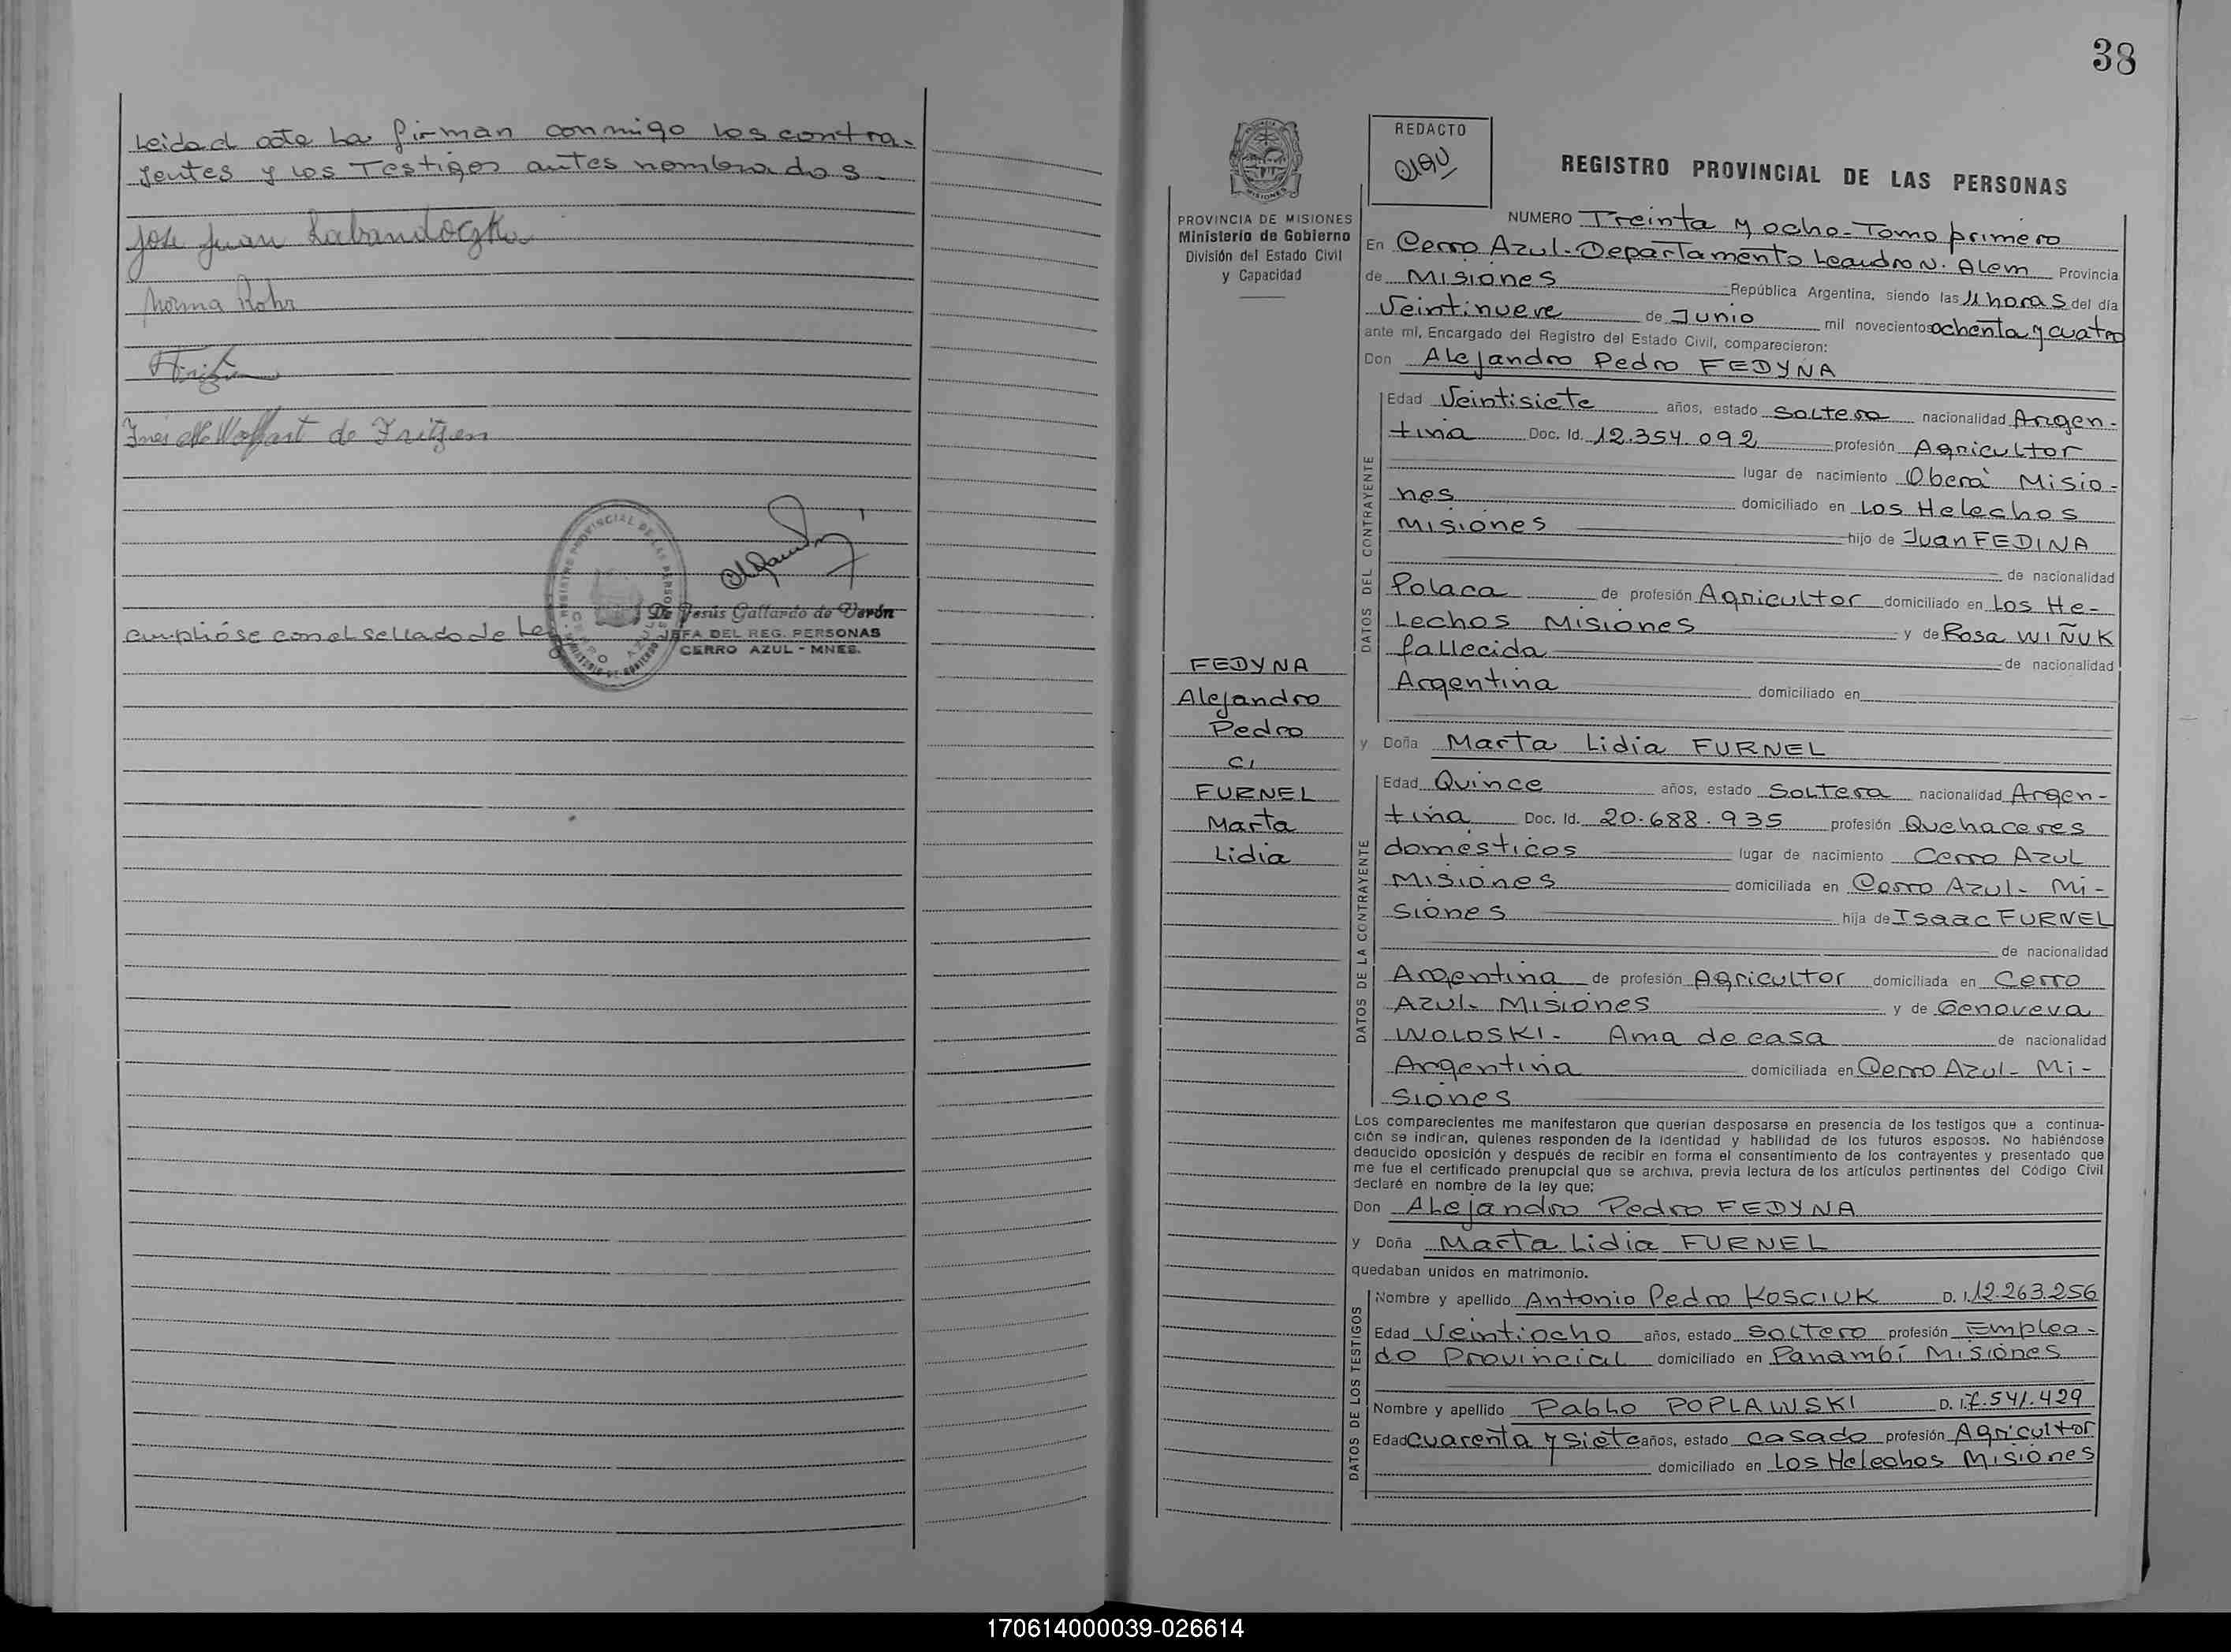 Leida el acta la firman conmigo los contra-
yentes y los Testigos antes nombrados-
José Juan Labandoczka
Norma Rohr
Inés de Wolfart de Fritzen
REGISTRO PROVINCIAL DE LAS PERSONAS
De Jesús Gallardo de Verón
JEFA DEL REG. PERSONAS
CERRO AZUL - MNES.
cumplióse con el sellado de Ley
38
PROVINCIA DE MISIONES
Ministerio de Gobierno
División del Estado Civil
y Capacidad
FEDYNA
Alejandro
Pedro
C/
FURNEL
Marta
Lidia
REDACTO
REGISTRO PROVINCIAL DE LAS PERSONAS
NUMERO Treinta y ocho-Tomo primero
En Cerro Azul-Departamento Leandro N. Alem Provincia
de Misiones República Argentina, siendo las 11 horas del día
Veintinueve de Junio mil novecientos ochenta y cuatro
ante mí, Encargado del Registro del Estado Civil, comparecieron:
Don Alejandro Pedro FEDYNA
DATOS DEL CONTRAYENTE
Edad Veintisiete años, estado soltero nacionalidad Argen-
tina Doc. Id. 12.354.092 profesión Agricultor
lugar de nacimiento Oberá Misio-
nes domiciliado en Los Helechos
Misiones hijo de Juan FEDINA
de nacionalidad
Polaca de profesión Agricultor domiciliado en Los He-
lechos Misiones y de Rosa WIÑUK
fallecida de nacionalidad
Argentina domiciliado en
y Doña Marta Lidia FURNEL
DATOS DE LA CONTRAYENTE
Edad Quince años, estado Soltera nacionalidad Argen-
tina Doc. Id. 20.688.935 profesión Quehaceres
domésticos lugar de nacimiento Cerro Azul
Misiones domiciliada en Cerro Azul- Mi-
siones hija de Isaac FURNEL
de nacionalidad
Argentina de profesión Agricultor domiciliada en Cerro
Azul- Misiones y de Genoveva
WOLOSKI- Ama de casa de nacionalidad
Argentina domiciliada en Cerro Azul- Mi-
siones
Los comparecientes me manifestaron que querían desposarse en presencia de los testigos que a continua-
ción se indican, quienes responden de la identidad y habilidad de los futuros esposos. No habiéndose
deducido oposición y después de recibir en forma el consentimiento de los contrayentes y presentado que
me fue el certificado prenupcial que se archiva, previa lectura de los artículos pertinentes del Código Civil
declaré en nombre de la ley que:
Don Alejandro Pedro FEDYNA
y Doña Marta Lidia FURNEL
quedaban unidos en matrimonio.
DATOS DE LOS TESTIGOS
Nombre y apellido Antonio Pedro KOSCIUK D. I. 12.263.256
Edad Veintiocho años, estado soltero profesión Emplea-
do Provincial domiciliado en Panambí Misiones
Nombre y apellido Pablo POPLAWSKI D. I. 7.541.429
Edad cuarenta y siete años, estado casado profesión Agricultor
domiciliado en Los Helechos Misiones
170614000039-026614